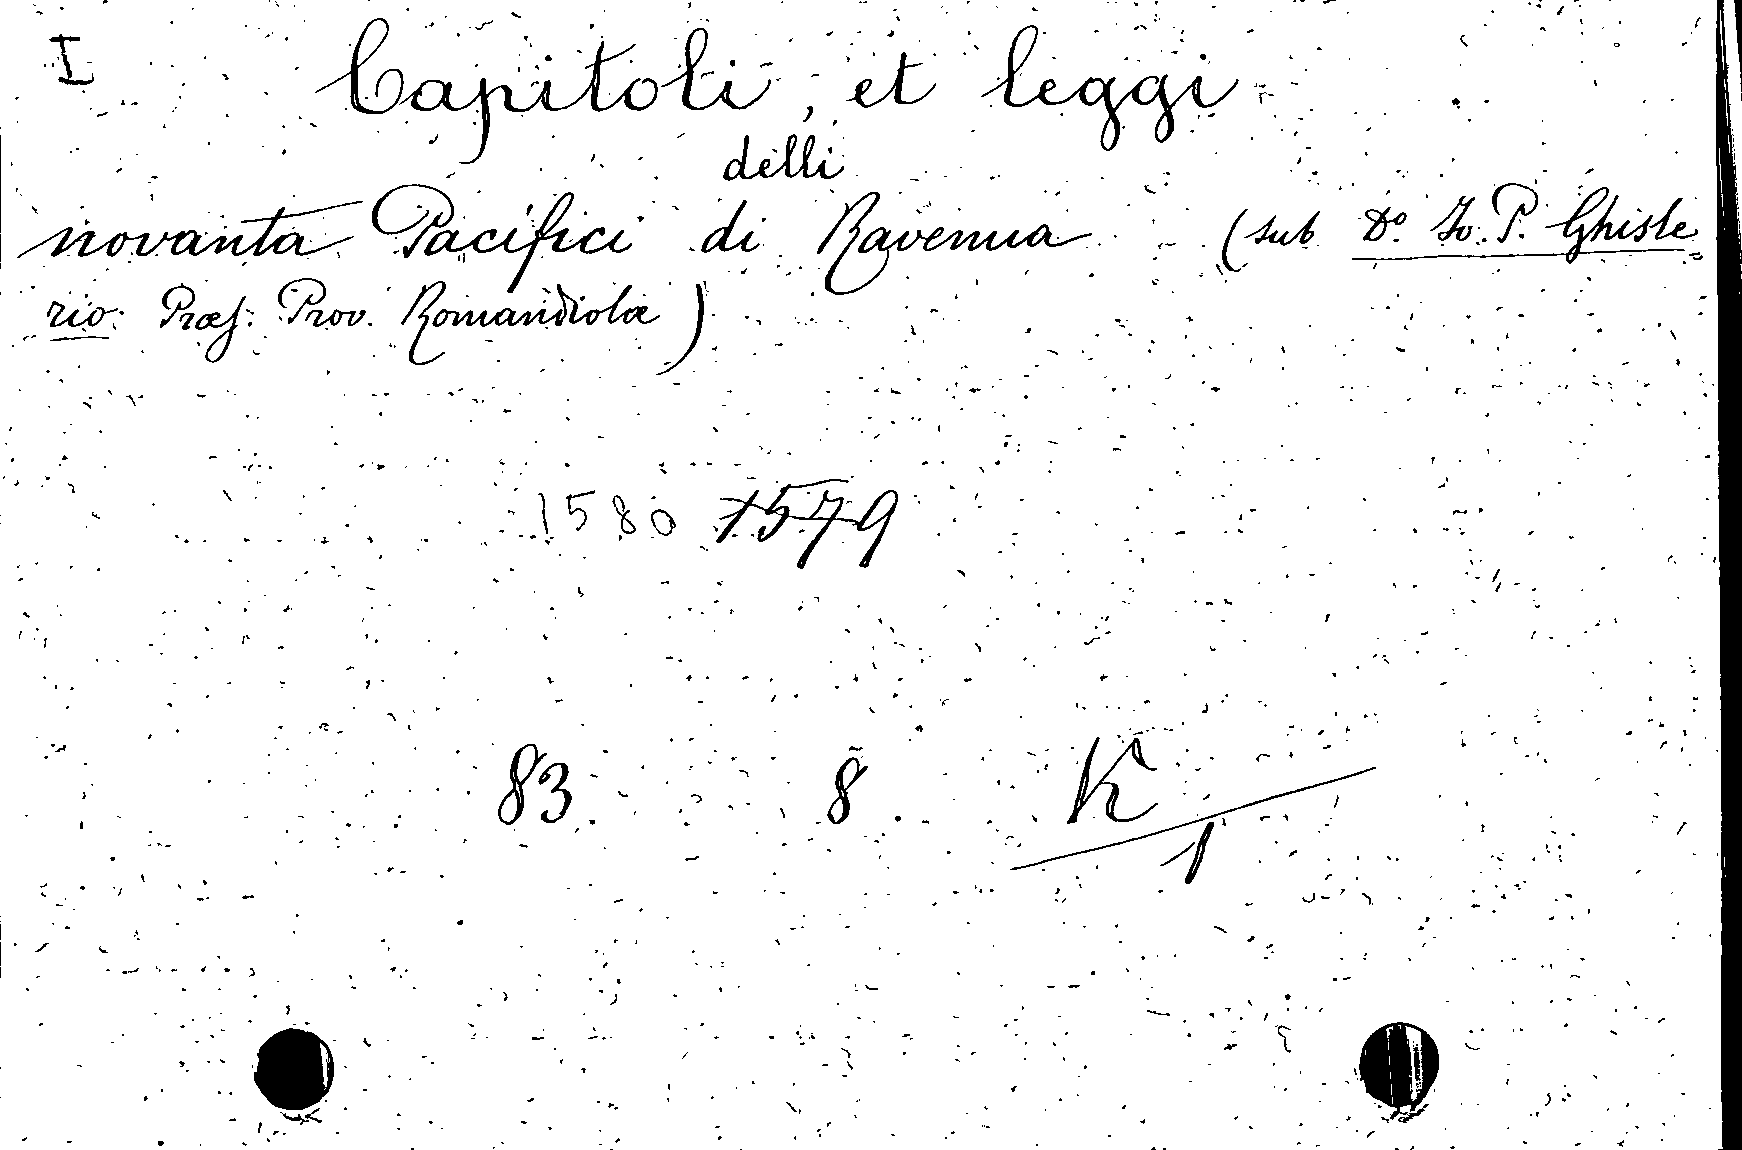 I
Capitoli, et leggi
delli
novanta Pacifici di Ravenna (sub Do. Jo. P. Ghisle=
rio. Præs. Prov. Romandiolæ)
1580 1579
83 8 K
1